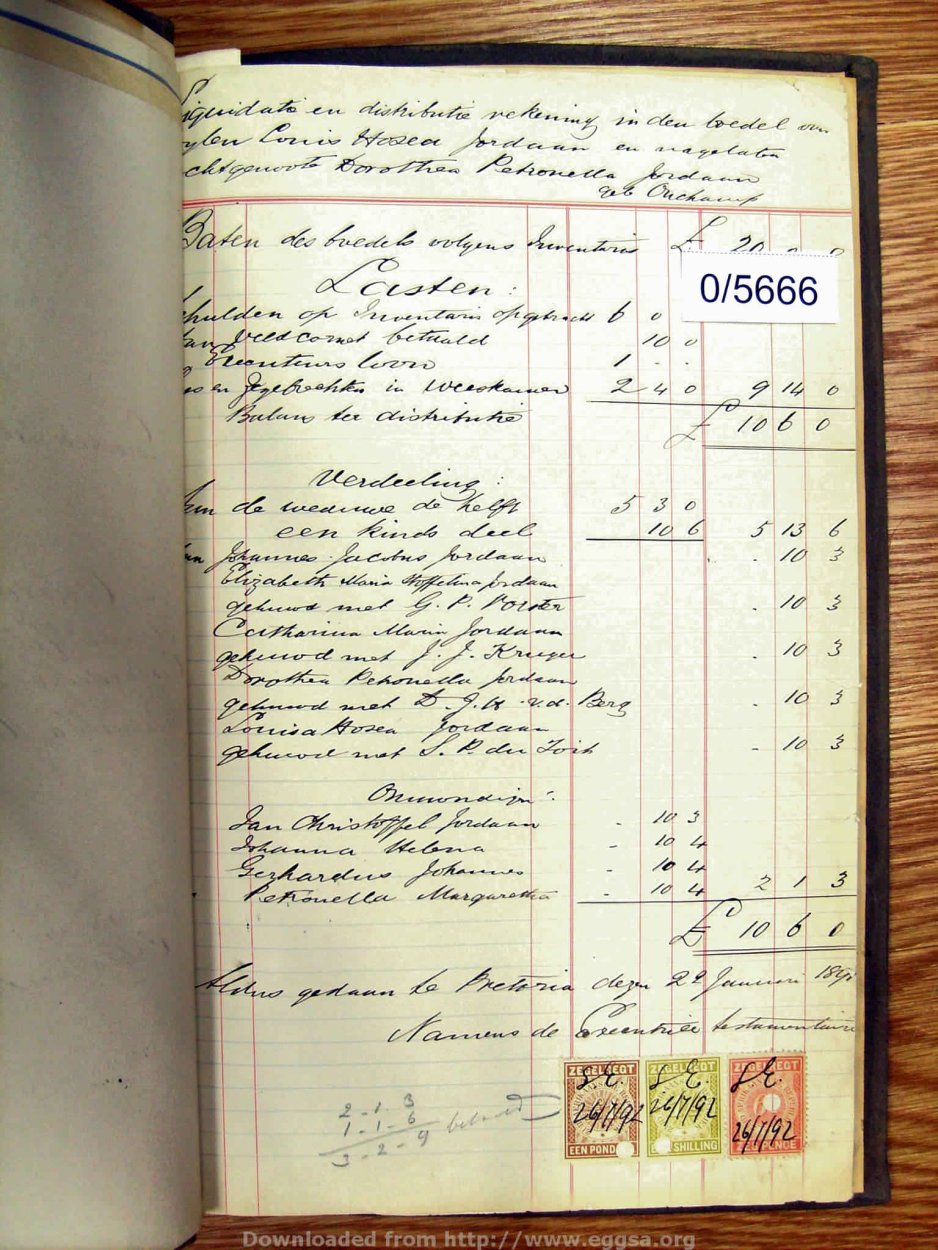 Liquidatie en distributie rekening in den boedel van
wylen Louis Hosea Jordaan en nagelaten
echtgenoote Dorothea Petronella Jordaan
geb
Baten des boedels volgens Inventaris £ 20 0 0
0/5666
Lasten:
Schulden op Inventaris opgebracht 6 0
Aan Veldcornet betaald 10 0
Executeurs loon 1 . .
en in Weeskamer 2 4 0 9 14 0
Balans ter distributie £ 10 6 0
Verdeeling:
Aan de weduwe de helft 5 3 0
een kinds deel 10 6 5 13 6
Aan Johannes Jacobus Jordaan . . 10 3
Elizabeth Maria Stoffelina Jordaan
gehuwd met G. P. Vorster . 10 3
Catharina Maria Jordaan
gehuwd met J. J. Kruger . 10 3
Dorothea Petronella Jordaan
gehuwd met D. J. H. v.d. Berg - 10 3
Louisa Hosea Jordaan
gehuwd met S. P. du Toit - 10 3
Onmondigen:
Jan Christoffel Jordaan - 10 3
Johanna Helena - 10 4
Gerhardus Johannes - 10 4
Petronella Margaretha - 10 4 2 1 3
£ 10 6 0
Aldus gedaan te Pretoria dezen 29 Januari
Namens de Executrice testamentaire
ZEGELREGT ZEGELREGT ZEGELREGT
S.E. S.E. S.E.
26/7/92 26/7/92 26/7/92
EEN POND SHILLING
2 - 1 - 3
1 - 1 - 6 betaald
3 - 2 - 9
Downloaded from http://www.eggsa.org